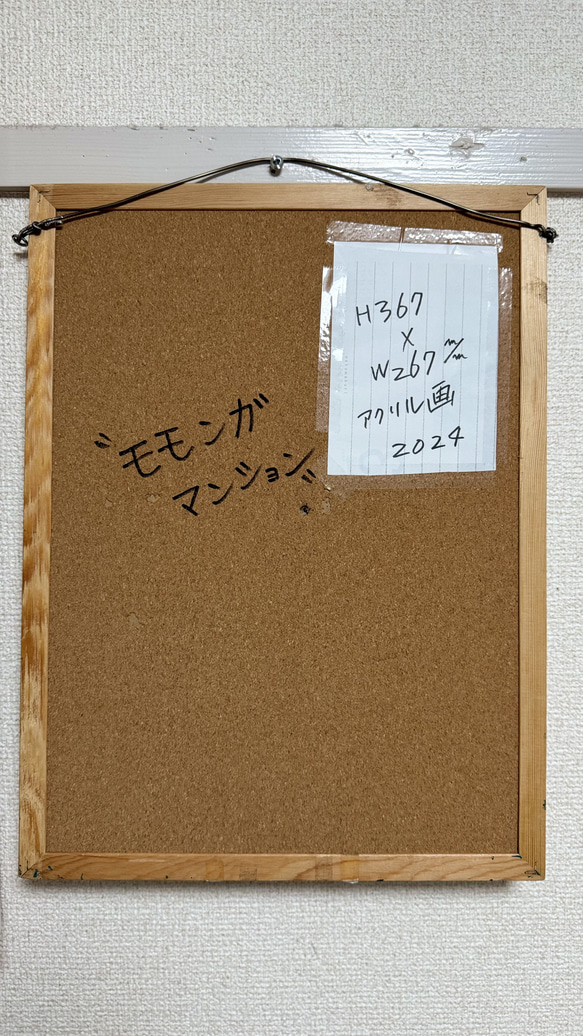 "モモンガ
マンション"
H367
X
W267 m/m
アクリル画
2024